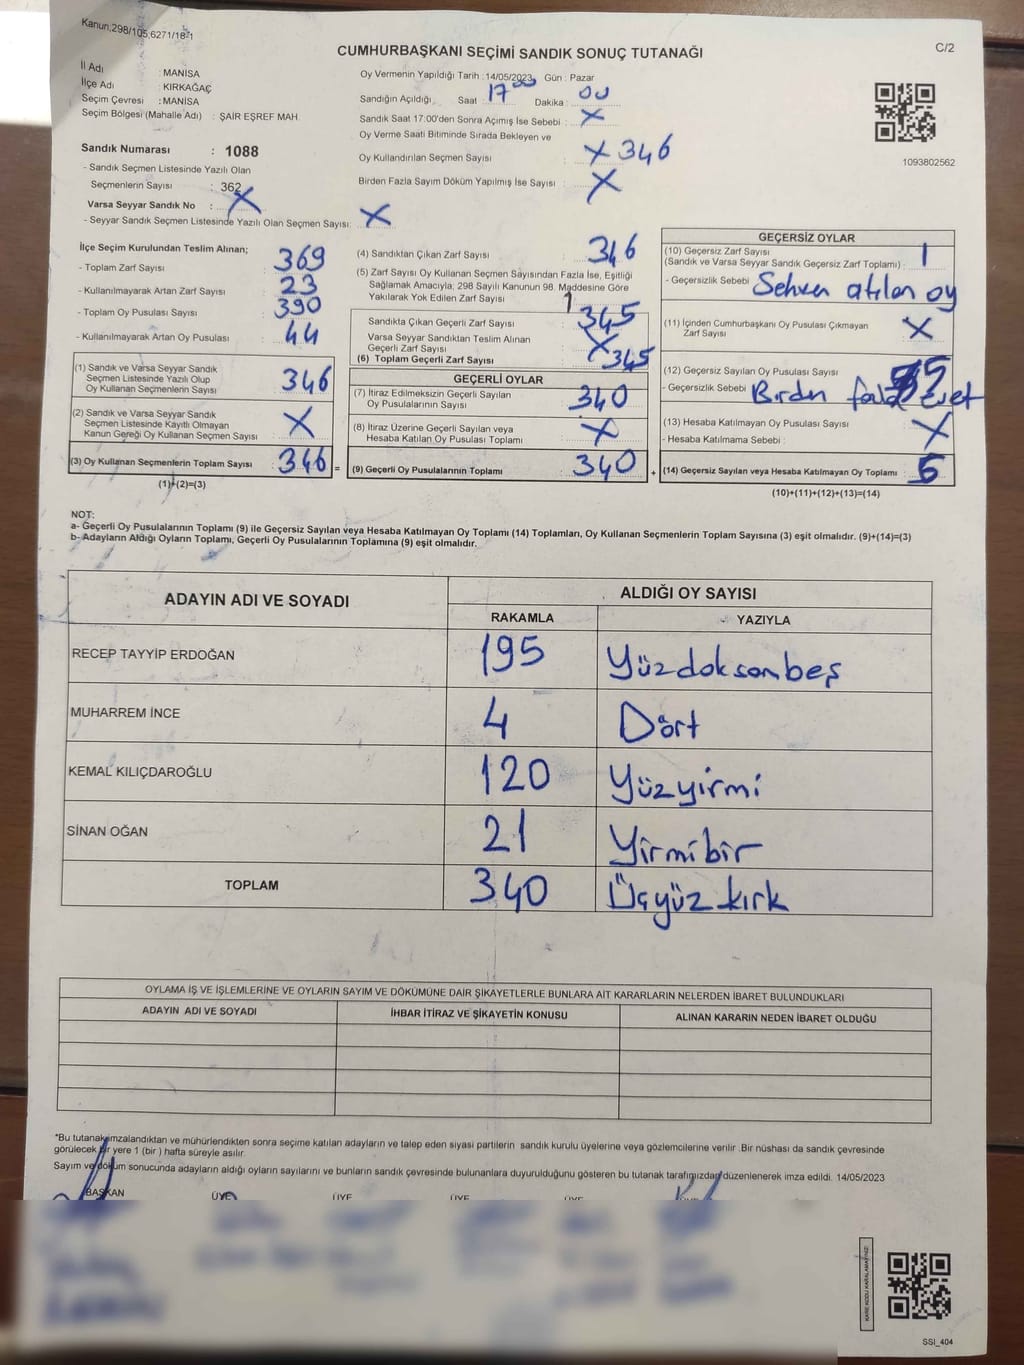 Kanun,298/105,6271/18-1
CUMHURBAŞKANI SEÇİMİ SANDIK SONUÇ TUTANAĞI
C/2
İl Adı : MANİSA
İlçe Adı : KIRKAĞAÇ
Seçim Çevresi : MANİSA
Seçim Bölgesi (Mahalle Adı) : ŞAİR EŞREF MAH.
Sandık Numarası : 1088
- Sandık Seçmen Listesinde Yazılı Olan
Seçmenlerin Sayısı : 362
Varsa Seyyar Sandık No : X
- Seyyar Sandık Seçmen Listesinde Yazılı Olan Seçmen Sayısı: X
Oy Vermenin Yapıldığı Tarih :14/05/2023 Gün : Pazar
Sandığın Açıldığı Saat : 17 00 Dakika : 00
Sandık Saat 17:00'den Sonra Açımış İse Sebebi : X
Oy Verme Saati Bitiminde Sırada Bekleyen ve
Oy Kullandırılan Seçmen Sayısı : X 346
Birden Fazla Sayım Döküm Yapılmış İse Sayısı : X
1093802562
İlçe Seçim Kurulundan Teslim Alınan;
- Toplam Zarf Sayısı : 369
- Kullanılmayarak Artan Zarf Sayısı : 23
- Toplam Oy Pusulası Sayısı : 390
- Kullanılmayarak Artan Oy Pusulası : 44
(1) Sandık ve Varsa Seyyar Sandık
Seçmen Listesinde Yazılı Olup
Oy Kullanan Seçmenlerin Sayısı : 346
(2) Sandık ve Varsa Seyyar Sandık
Seçmen Listesinde Kayıtlı Olmayan
Kanun Gereği Oy Kullanan Seçmen Sayısı : X
(3) Oy Kullanan Seçmenlerin Toplam Sayısı : 346 =
(1)+(2)=(3)
(4) Sandıktan Çıkan Zarf Sayısı : 346
(5) Zarf Sayısı Oy Kullanan Seçmen Sayısından Fazla İse, Eşitliği
Sağlamak Amacıyla; 298 Sayılı Kanunun 98. Maddesine Göre
Yakılarak Yok Edilen Zarf Sayısı : 1
Sandıkta Çıkan Geçerli Zarf Sayısı : 345
Varsa Seyyar Sandıktan Teslim Alınan
Geçerli Zarf Sayısı : X
(6) Toplam Geçerli Zarf Sayısı : 345
GEÇERLİ OYLAR
(7) İtiraz Edilmeksizin Geçerli Sayılan
Oy Pusulalarının Sayısı : 340
(8) İtiraz Üzerine Geçerli Sayılan veya
Hesaba Katılan Oy Pusulası Toplamı : X
(9) Geçerli Oy Pusulalarının Toplamı : 340 +
GEÇERSİZ OYLAR
(10) Geçersiz Zarf Sayısı
(Sandık ve Varsa Seyyar Sandık Geçersiz Zarf Toplamı) : 1
- Geçersizlik Sebebi : Sehven atılan oy
(11) İçinden Cumhurbaşkanı Oy Pusulası Çıkmayan
Zarf Sayısı : X
(12) Geçersiz Sayılan Oy Pusulası Sayısı : 5
- Geçersizlik Sebebi : Birden fazla evet
(13) Hesaba Katılmayan Oy Pusulası Sayısı : X
- Hesaba Katılmama Sebebi :
(14) Geçersiz Sayılan veya Hesaba Katılmayan Oy Toplamı :
(10)+(11)+(12)+(13)=(14)
NOT:
a- Geçerli Oy Pusulalarının Toplamı (9) ile Geçersiz Sayılan veya Hesaba Katılmayan Oy Toplamı (14) Toplamları, Oy Kullanan Seçmenlerin Toplam Sayısına (3) eşit olmalıdır. (9)+(14)=(3)
b- Adayların Aldığı Oyların Toplamı, Geçerli Oy Pusulalarının Toplamına (9) eşit olmalıdır.
ADAYIN ADI VE SOYADI
ALDIĞI OY SAYISI
RAKAMLA YAZIYLA
RECEP TAYYİP ERDOĞAN 195 Yüzdoksanbeş
MUHARREM İNCE 4 Dört
KEMAL KILIÇDAROĞLU 120 Yüzyirmi
SİNAN OĞAN 21 Yirmibir
TOPLAM 340 Üçyüzkırk
OYLAMA İŞ VE İŞLEMLERİNE VE OYLARIN SAYIM VE DÖKÜMÜNE DAİR ŞİKAYETLERLE BUNLARA AİT KARARLARIN NELERDEN İBARET BULUNDUKLARI
ADAYIN ADI VE SOYADI İHBAR İTİRAZ VE ŞİKAYETİN KONUSU ALINAN KARARIN NEDEN İBARET OLDUĞU
*Bu tutanak imzalandıktan ve mühürlendikten sonra seçime katılan adayların ve talep eden siyasi partilerin sandık kurulu üyelerine veya gözlemcilerine verilir .Bir nüshası da sandık çevresinde
görülecek bir yere 1 (bir ) hafta süreyle asılır.
Sayım ve döküm sonucunda adayların aldığı oyların sayılarını ve bunların sandık çevresinde bulunanlara duyurulduğunu gösteren bu tutanak tarafımızdan düzenlenerek imza edildi. 14/05/2023
BAŞKAN ÜYE ÜYE ÜYE ÜYE
SSİ_404